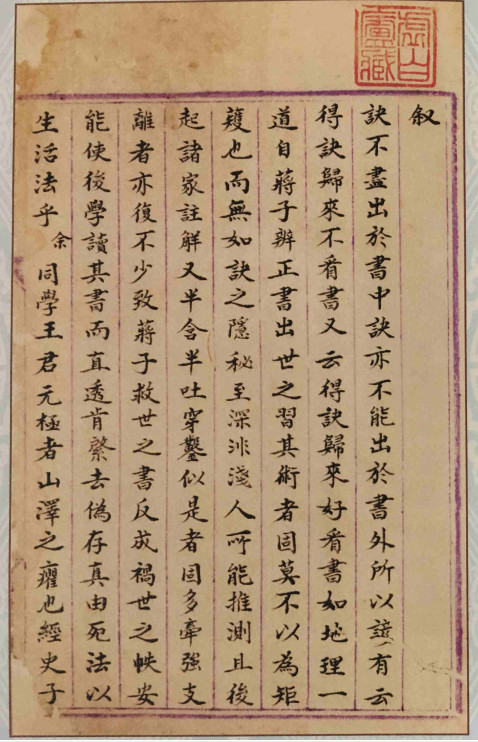 虛白廬藏
叙
訣不盡出於書中訣亦不能出於書外所以諺有云
得訣歸來不看書又云得訣歸來好看書如地理一
道自蔣子辨正書出世之習其術者固莫不以為矩
矱也而無如訣之隱秘至深非淺人所能推測且後
起諸家註解又半含半吐穿鑿似是者固多牽強支
離者亦復不少致蔣子救世之書反成禍世之帙安
能使後學讀其書而直透肯綮去偽存真由死法以
生活法乎余同學王君元極者山澤之癯也經史子